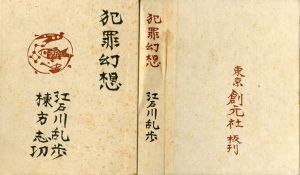 犯罪幻想
江戸川乱歩
棟方志功
犯罪幻想
江戸川乱歩
東京
創元社
板刊